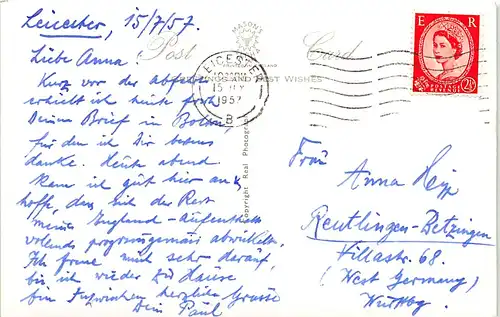 Leicester, 15/7/57.
MASON'S
Post Card
GREETINGS AND BEST WISHES
LEICESTER
15 JLY
1957
B
E R
2½
Liebe Anna!
Kurz vor der Abfahrt
erhielt ich heute früh
Deinen Brief in Bolton,
für den ich Dir bestens
danke. Heute abend
kam ich gut hier an &
hoffe, dass sich der Rest
meines England-Aufenthalts
vollends programmgemäss abwickelt.
Ich freue mich sehr darauf,
bis ich wieder zu Hause
bin. Inzwischen herzliche Grüsse
Dein Paul
Copyright Real Photograph
Frau
Anna Hipp
Reutlingen-Betzingen
Villastr. 68.
(West Germany)
Württbg.